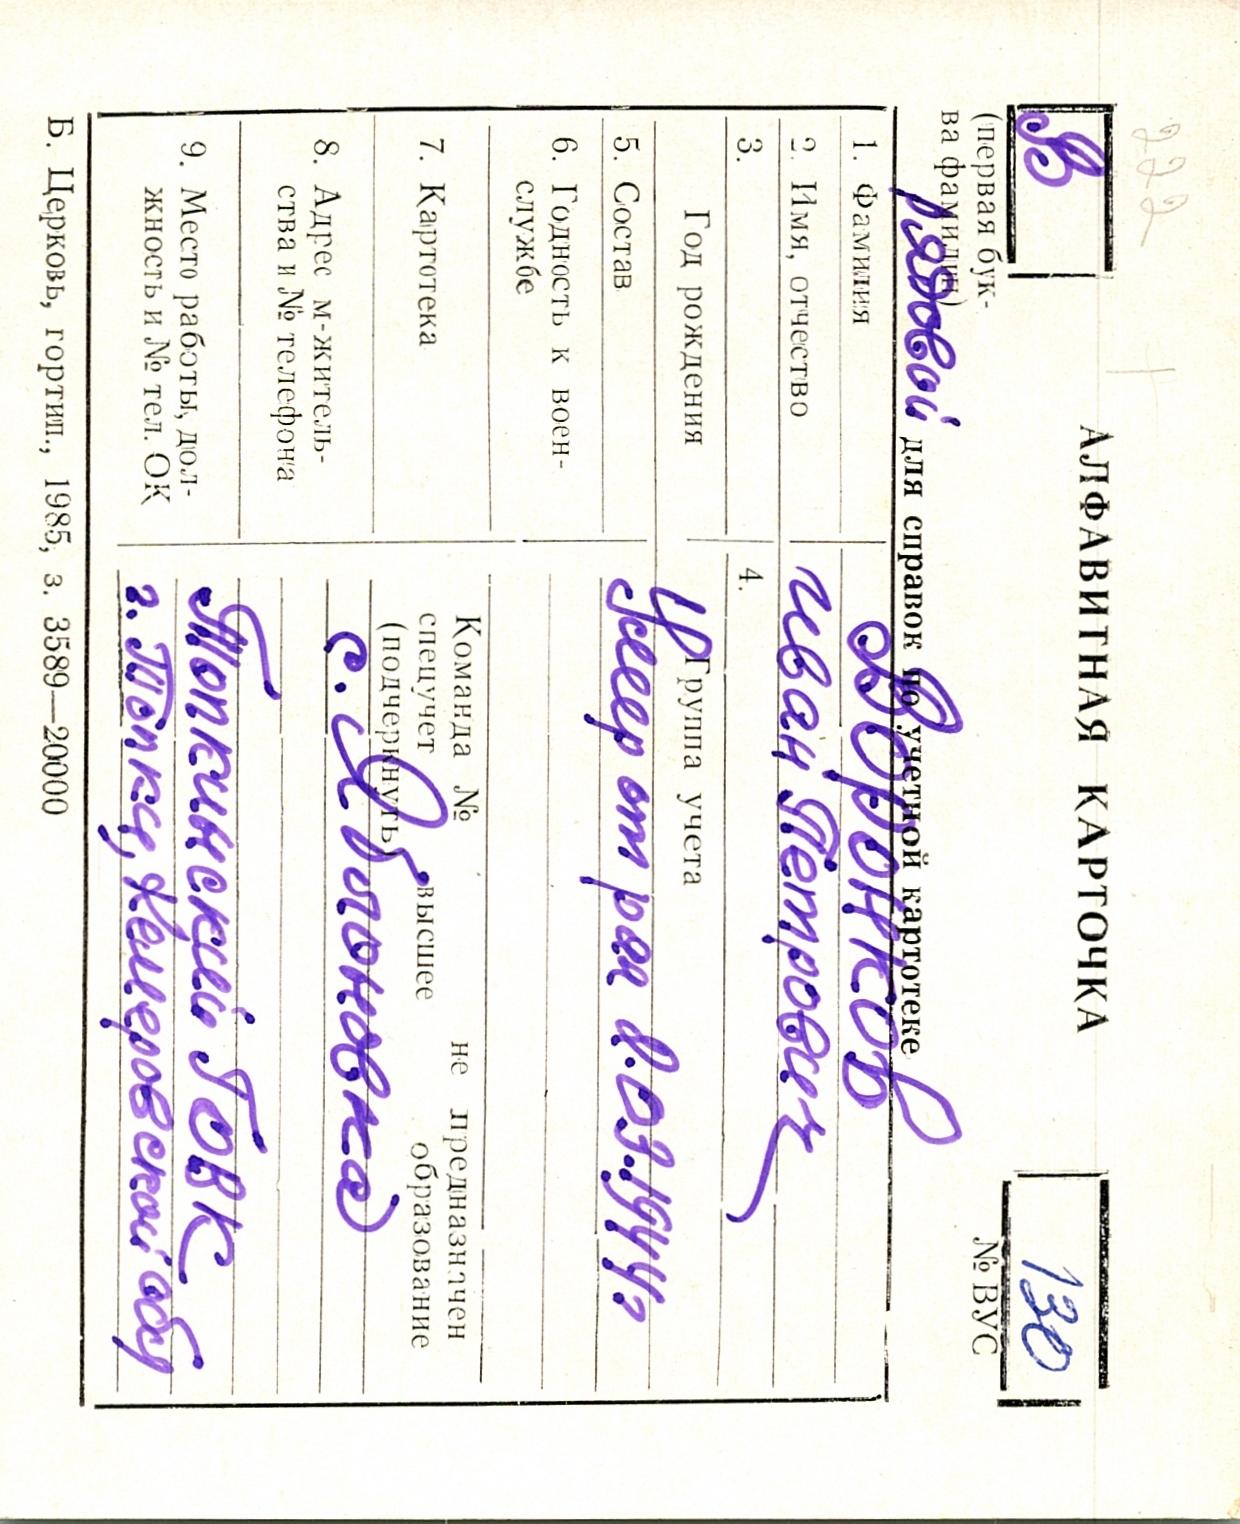 222
АЛФАВИТНАЯ КАРТОЧКА
В
130
(первая бук-
ва фамилии)
№ ВУС
рядовой для справок по учетной картотеке
1. Фамилия Воронков
2. Имя, отчество Иван Петрович
3.
4.
Год рождения
Группа учета
Умер от ран 2.03.1944г
5. Состав
6. Годность к воен-
службе
7. Картотека
Команда № не предназначен
спецучет высшее образование
(подчеркнуть)
8. Адрес м-житель-
ства и № телефона
с. Яблоновка
9. Место работы, дол-
жность и № тел. ОК
Топкинский ГВК
г. Топки, Кемеровской обл
Б. Церковь, гортип., 1985, з. 3589—20000